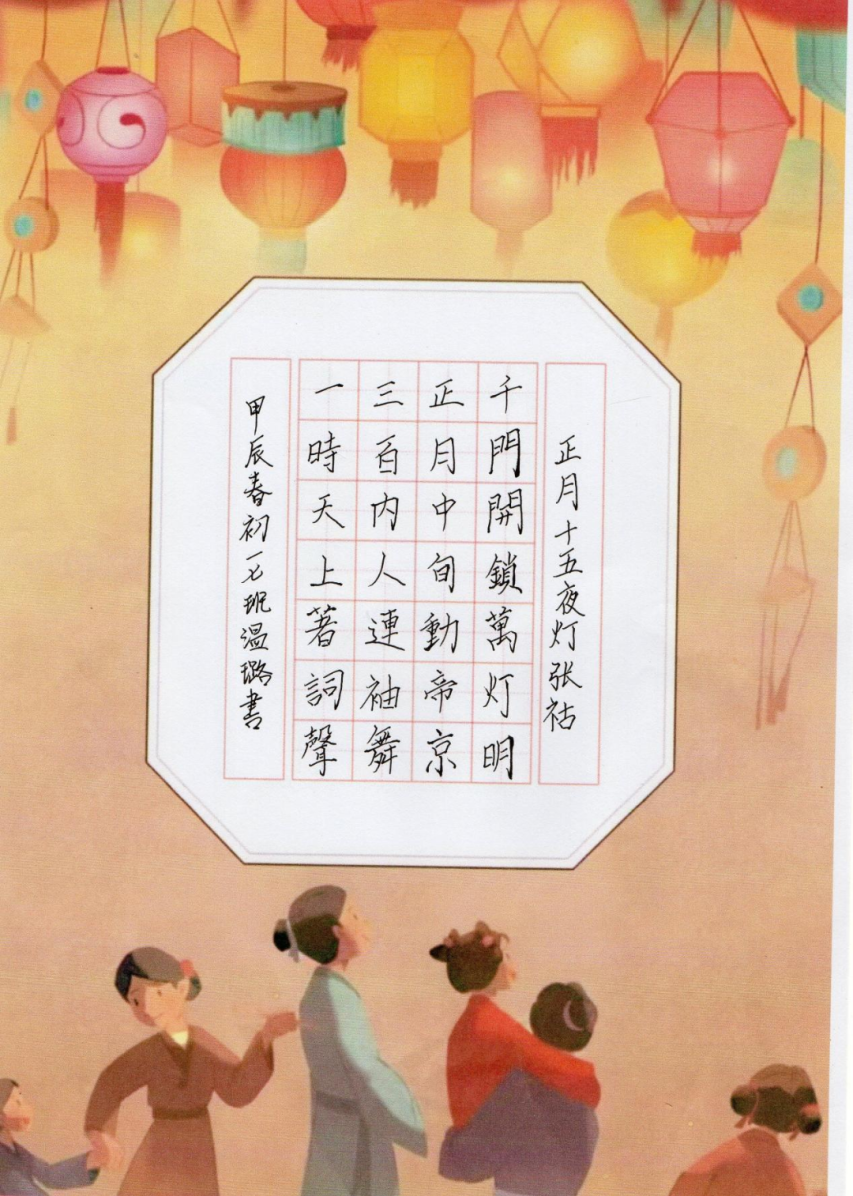 正月十五夜灯张祜
千門開鎖萬灯明
正月中旬動帝京
三百内人連袖舞
一時天上著詞聲
甲辰春初一七班温璐書